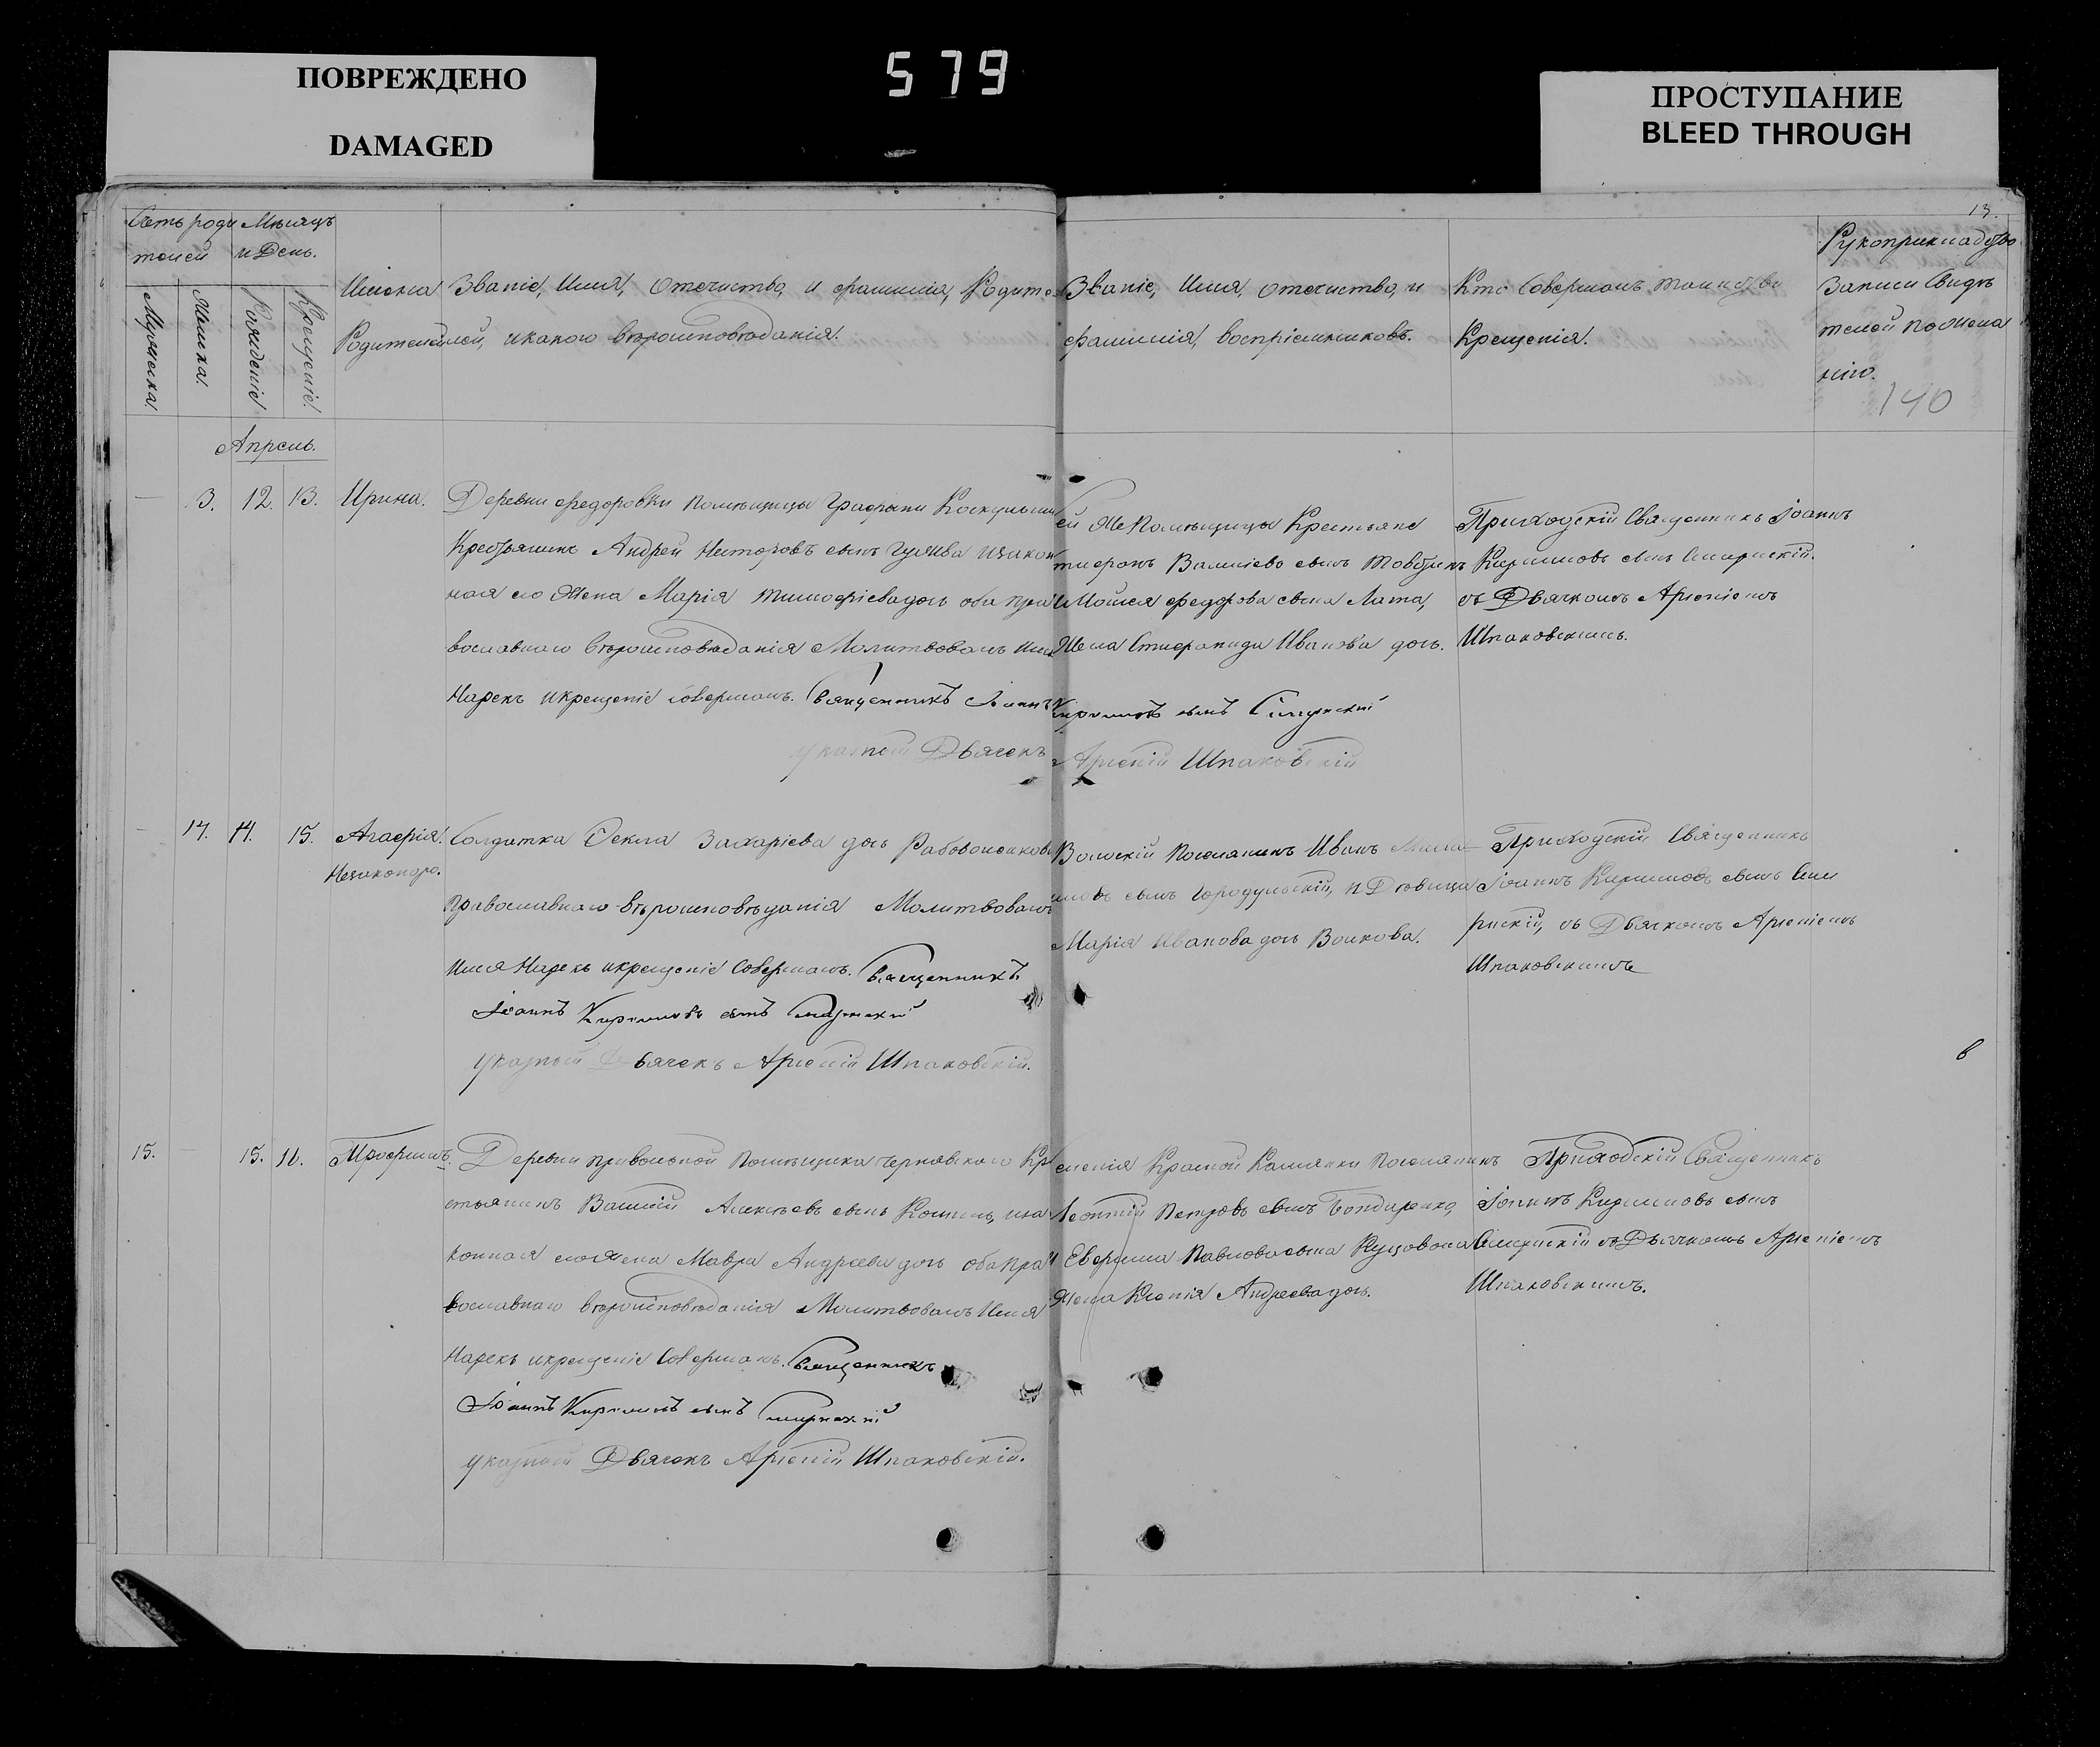 ПОВРЕЖДЕНО
DAMAGED
579
ПРОСТУПАНИЕ
BLEED THROUGH
13.
140
Счетъ роди
телей
Мѣсяцъ
и День.
Мужеска.
Женска.
Рожденіе
Крещеніе.
Имена
Родителей
Званіе, Имя, Отечиство, и фамилія, Родите
лей, икакого вѣроисповѣданія.
Званіе, Имя, отечиство, и
фамилія, воспріемниковъ.
Кто Совершалъ таинство
Крещенія.
Рукоприкладство
Записи Свидѣ
телей по жела
нію.
Апрель.
3. 12. 13. Ирина.
Деревни Федоровки помѣщицы Графини
Крестьянинъ Андрей Несторовъ сынъ изакон
ная его Жена Марія Тимофіева дочь оба пра
вославнаго вѣроисповѣданія Молитвовалъ имя
Нарекъ икрещеніе совершалъ. Священникъ Іоаннъ
Кириловъ сынъ
указной Дьячекъ Арсеній Шпаковскій
ей Же Помѣщицы Крестьяне
Василіевъ сынъ
Мойсея федорова сына
Жена Ивановa дочь.
Приходскій Священникъ Іоаннъ
Кириловъ сынъ
съ Дьячкомъ Арсеніемъ
Шпаковскимъ.
14. 14. 15. Агафія.
Незаконоро.
Солдатка Текла Захаріева дочь
православнаго вѣроисповѣданія Молитвовалъ
Имя Нарекъ икрещеніе Совершалъ. Священникъ
Іоаннъ Кириловъ сынъ
указной Дьячекъ Арсеній Шпаковскій.
Поселянинъ Иванъ
сынъ Городульскій, и Дѣвица
Марія Иванова дочь Волкова.
Приходскій Священникъ
Іоаннъ Кириловъ сынъ
съ Дьячкомъ Арсеніемъ
Шпаковскимъ
15. 15. 16. Трофимъ.
Деревни Привольной Помѣщика Чернявскаго Кре
стьянинъ Василій Алексѣевъ сынъ иза
конная его жена Мавра Андреева дочь оба пра
вославнаго вѣроисповѣданія Молитвовалъ Имя
Нарекъ икрещеніе Совершалъ. Священникъ
Іоаннъ Кириловъ сынъ
указной Дьячекъ Арсеній Шпаковскій.
селенія Красной Камянки Поселянинъ
Леонтій Петровъ сынъ Бондаренко,
Ефрема Павлова сына
Жена Ксенія Андреева дочь.
Приходскій Священникъ
Іоаннъ Кириловъ сынъ
съ Дьячкомъ Арсеніемъ
Шпаковскимъ.